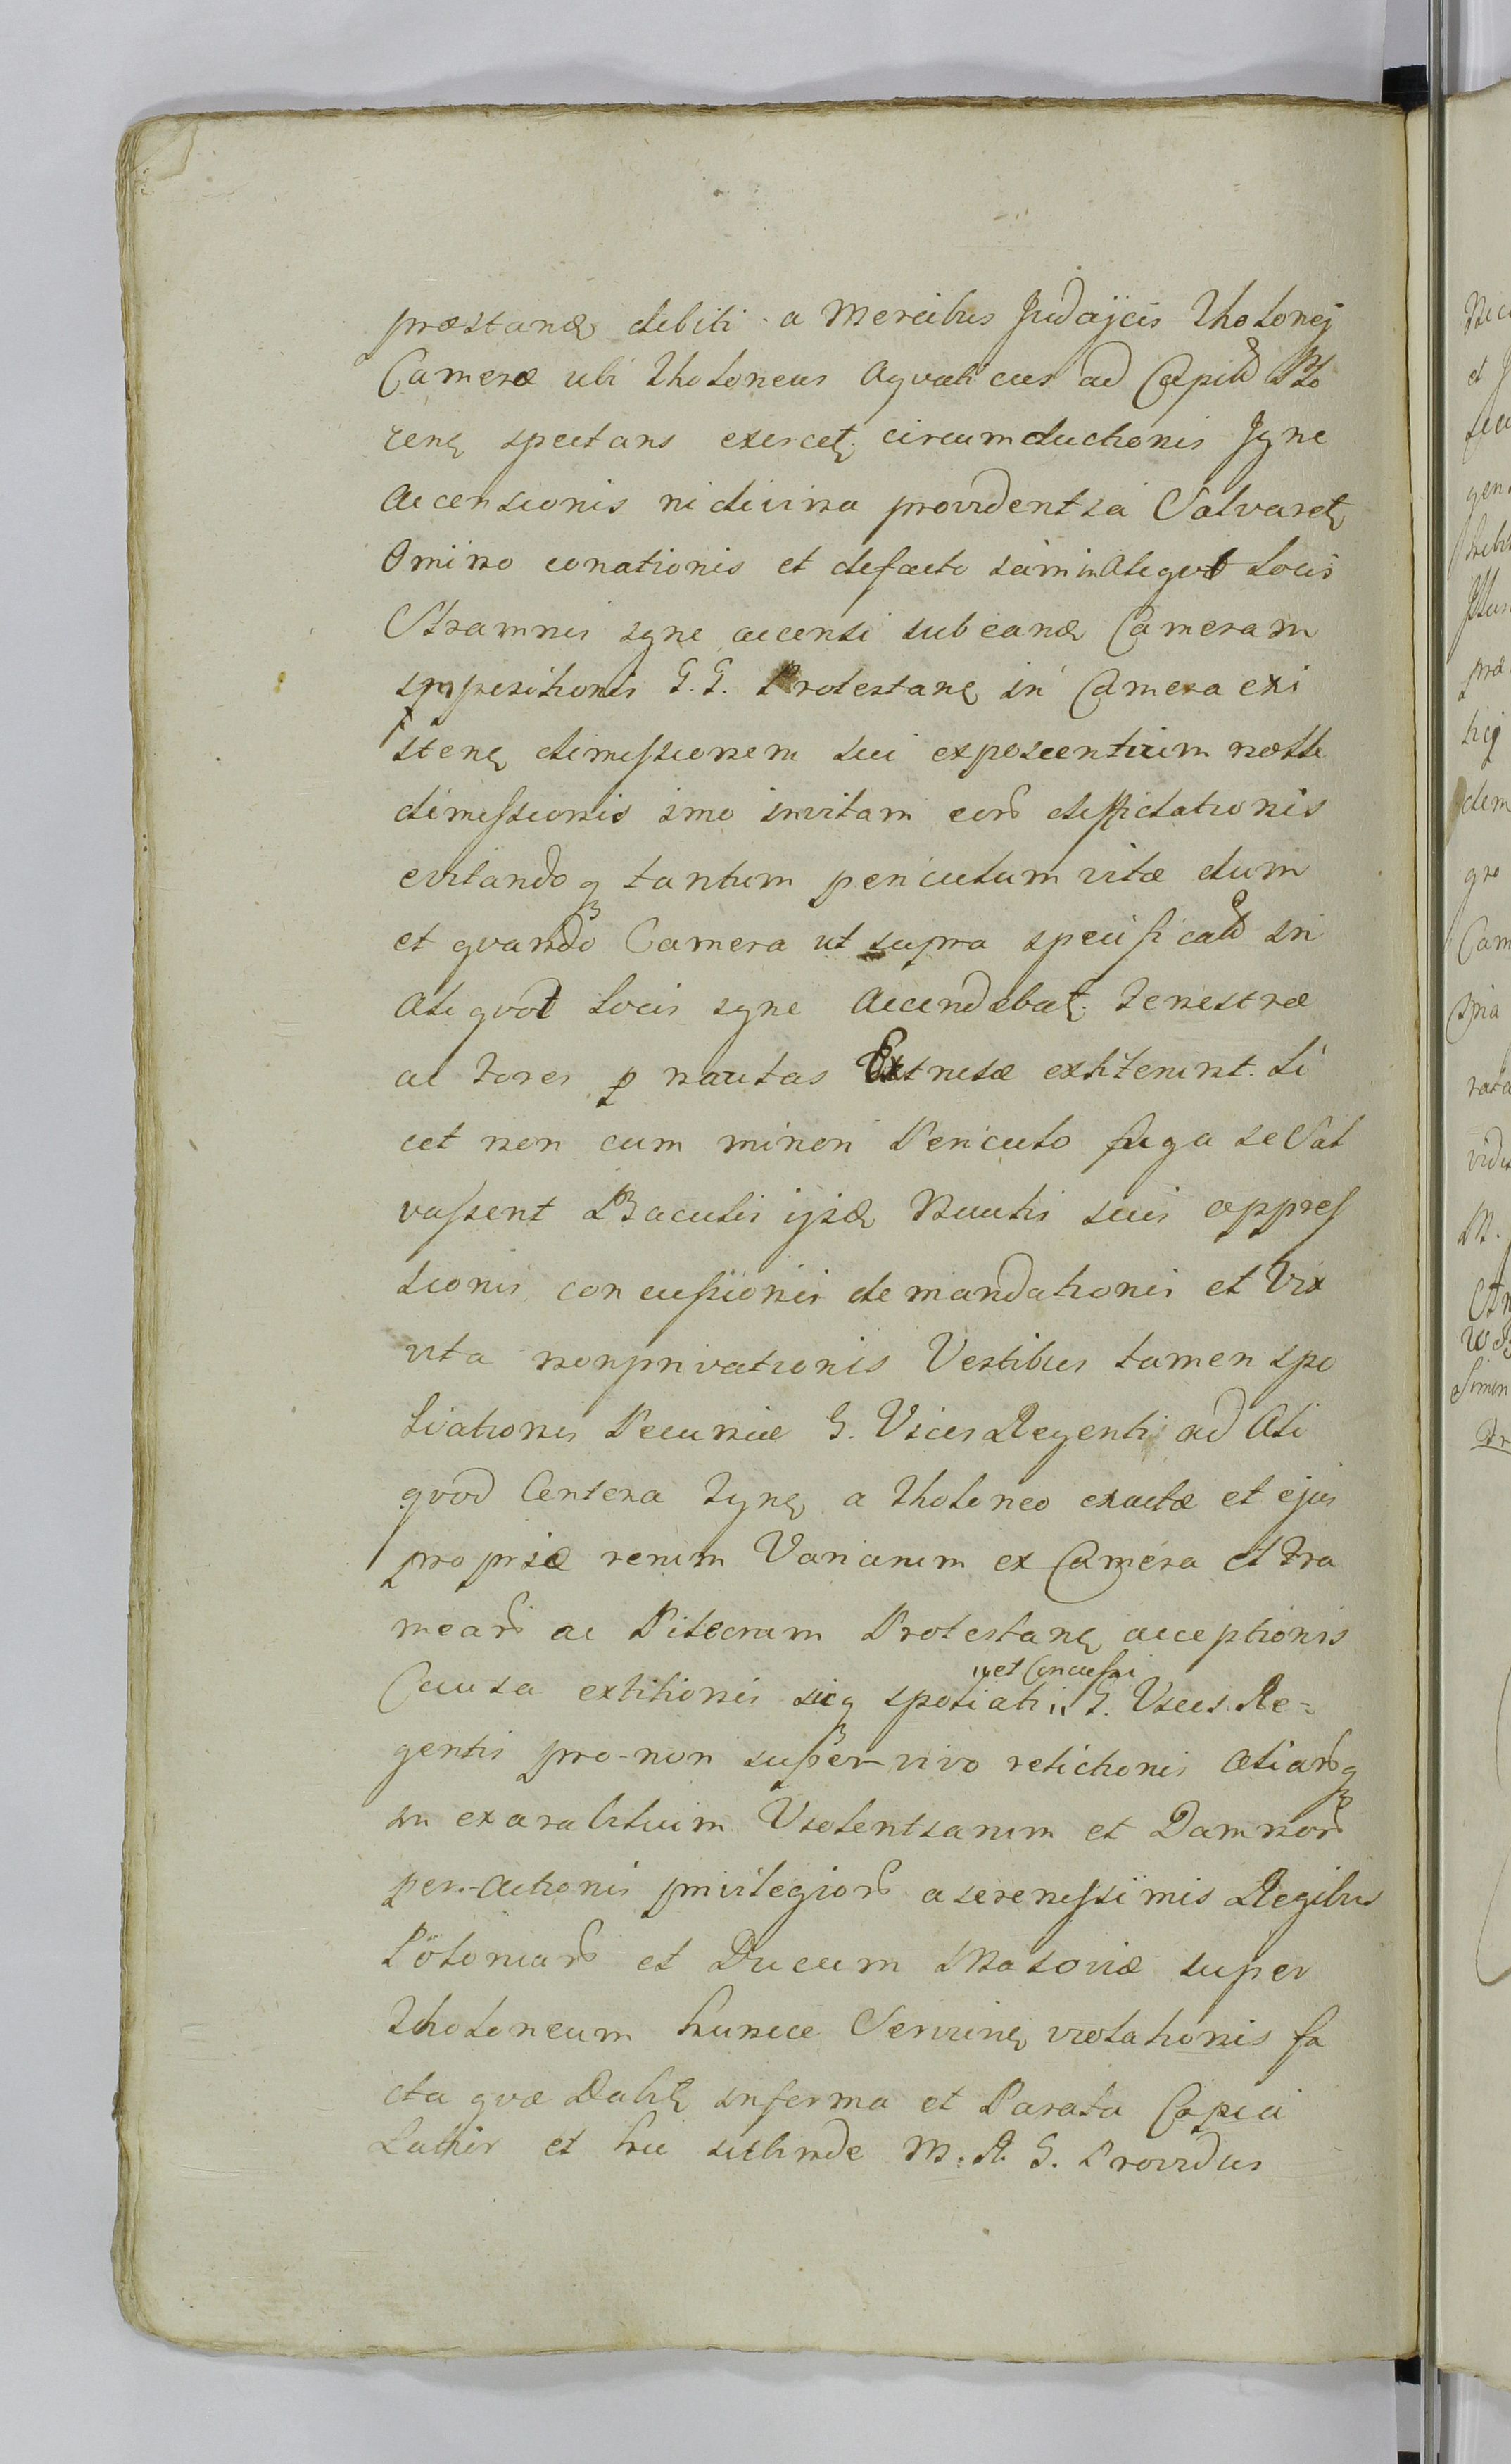 præstandæ debiti a Mercibus Judajcis Tholonej
Cameræ ubi Tholoneus Aqvaticus ad Capitlũ Plo
cenę spectans exercetę circumductionis Jgne
Accensionis ni divina providentia Salvaretę
Omnino conationis et defacto iam in Aliqvot locis
Straminis igne accensi sub eandę Cameram
impositionis G. G. Protestanę in Camera exi
stenę dimissionem sui exposcentium nolle
dimissionis imo invitam eorũ
evitandoq tantum periculum vitæ dum
et qvando Camera ut supra specificatũ in
Aliqvot locis igne Accendebatę fenestræ
ac fores p nautas Extrusæ extiterunt. Li
cet non cum minori Periculo fuga se Sal
vassent Baculis ijsdę Nautis suis oppres
sionis concussionis demandationis et Vix
vita nonprivationis Vestibus tamen spo
liationis Pecuniæ G. Vices Regentis ad Ali
qvod Centena Tynę a Tholoneo exactæ et ejus
propriæ rerum Variarum ex Camera et fra
mearũ ac Pileorum Protestanę acceptionis
Causa extitionis sicq spoliati et Concussi G. Vices Re=
gentis pro-non super-vivo relictionis Aliarũq
in exarabilium Violentiarum et Damnorũ
per-Actionis privilegiorũ a serenissimis Regibus
Poloniarũ et Ducum Masoviæ super
Tholoneum hunce Servienę violationis fa
cta qvæ Dabitę in forma et Parata Copia
Latius et hic subinde M. R. G. Providus